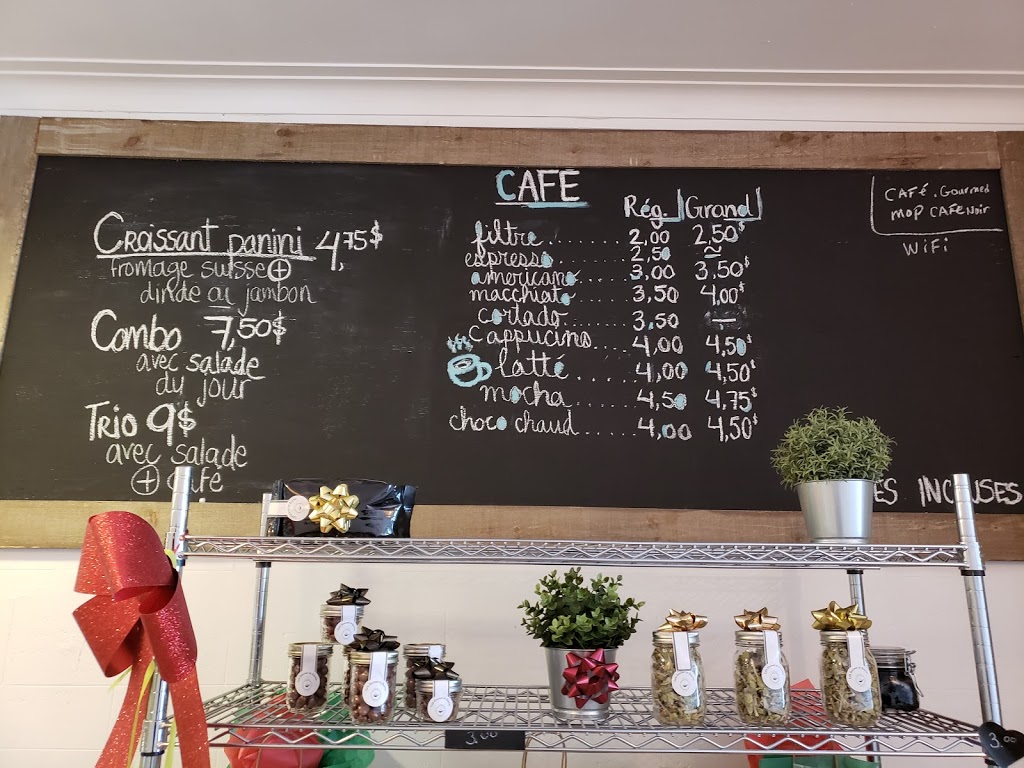 CROISSANT panini 4,75$
fromage suisse ⊕
dinde ou jambon
Combo 7,50$
avec salade
du jour
TRIO 9$
avec salade
⊕ café
CAFÉ
Rég. Grand
filtre........ 2,00 2,50$
espresso........ 2,50 ~
americano........ 3,00 3,50$
macchiato........ 3,50 4,00$
cortado........ 3,50 —
Cappucino.... 4,00 4,50$
latté...... 4,00 4,50$
mocha...... 4,50 4,75$
choco chaud...... 4,00 4,50$
CAFÉ.Gourmed
MOP CAFENoir
WiFi
ES INCLUSES
3.00
3.00